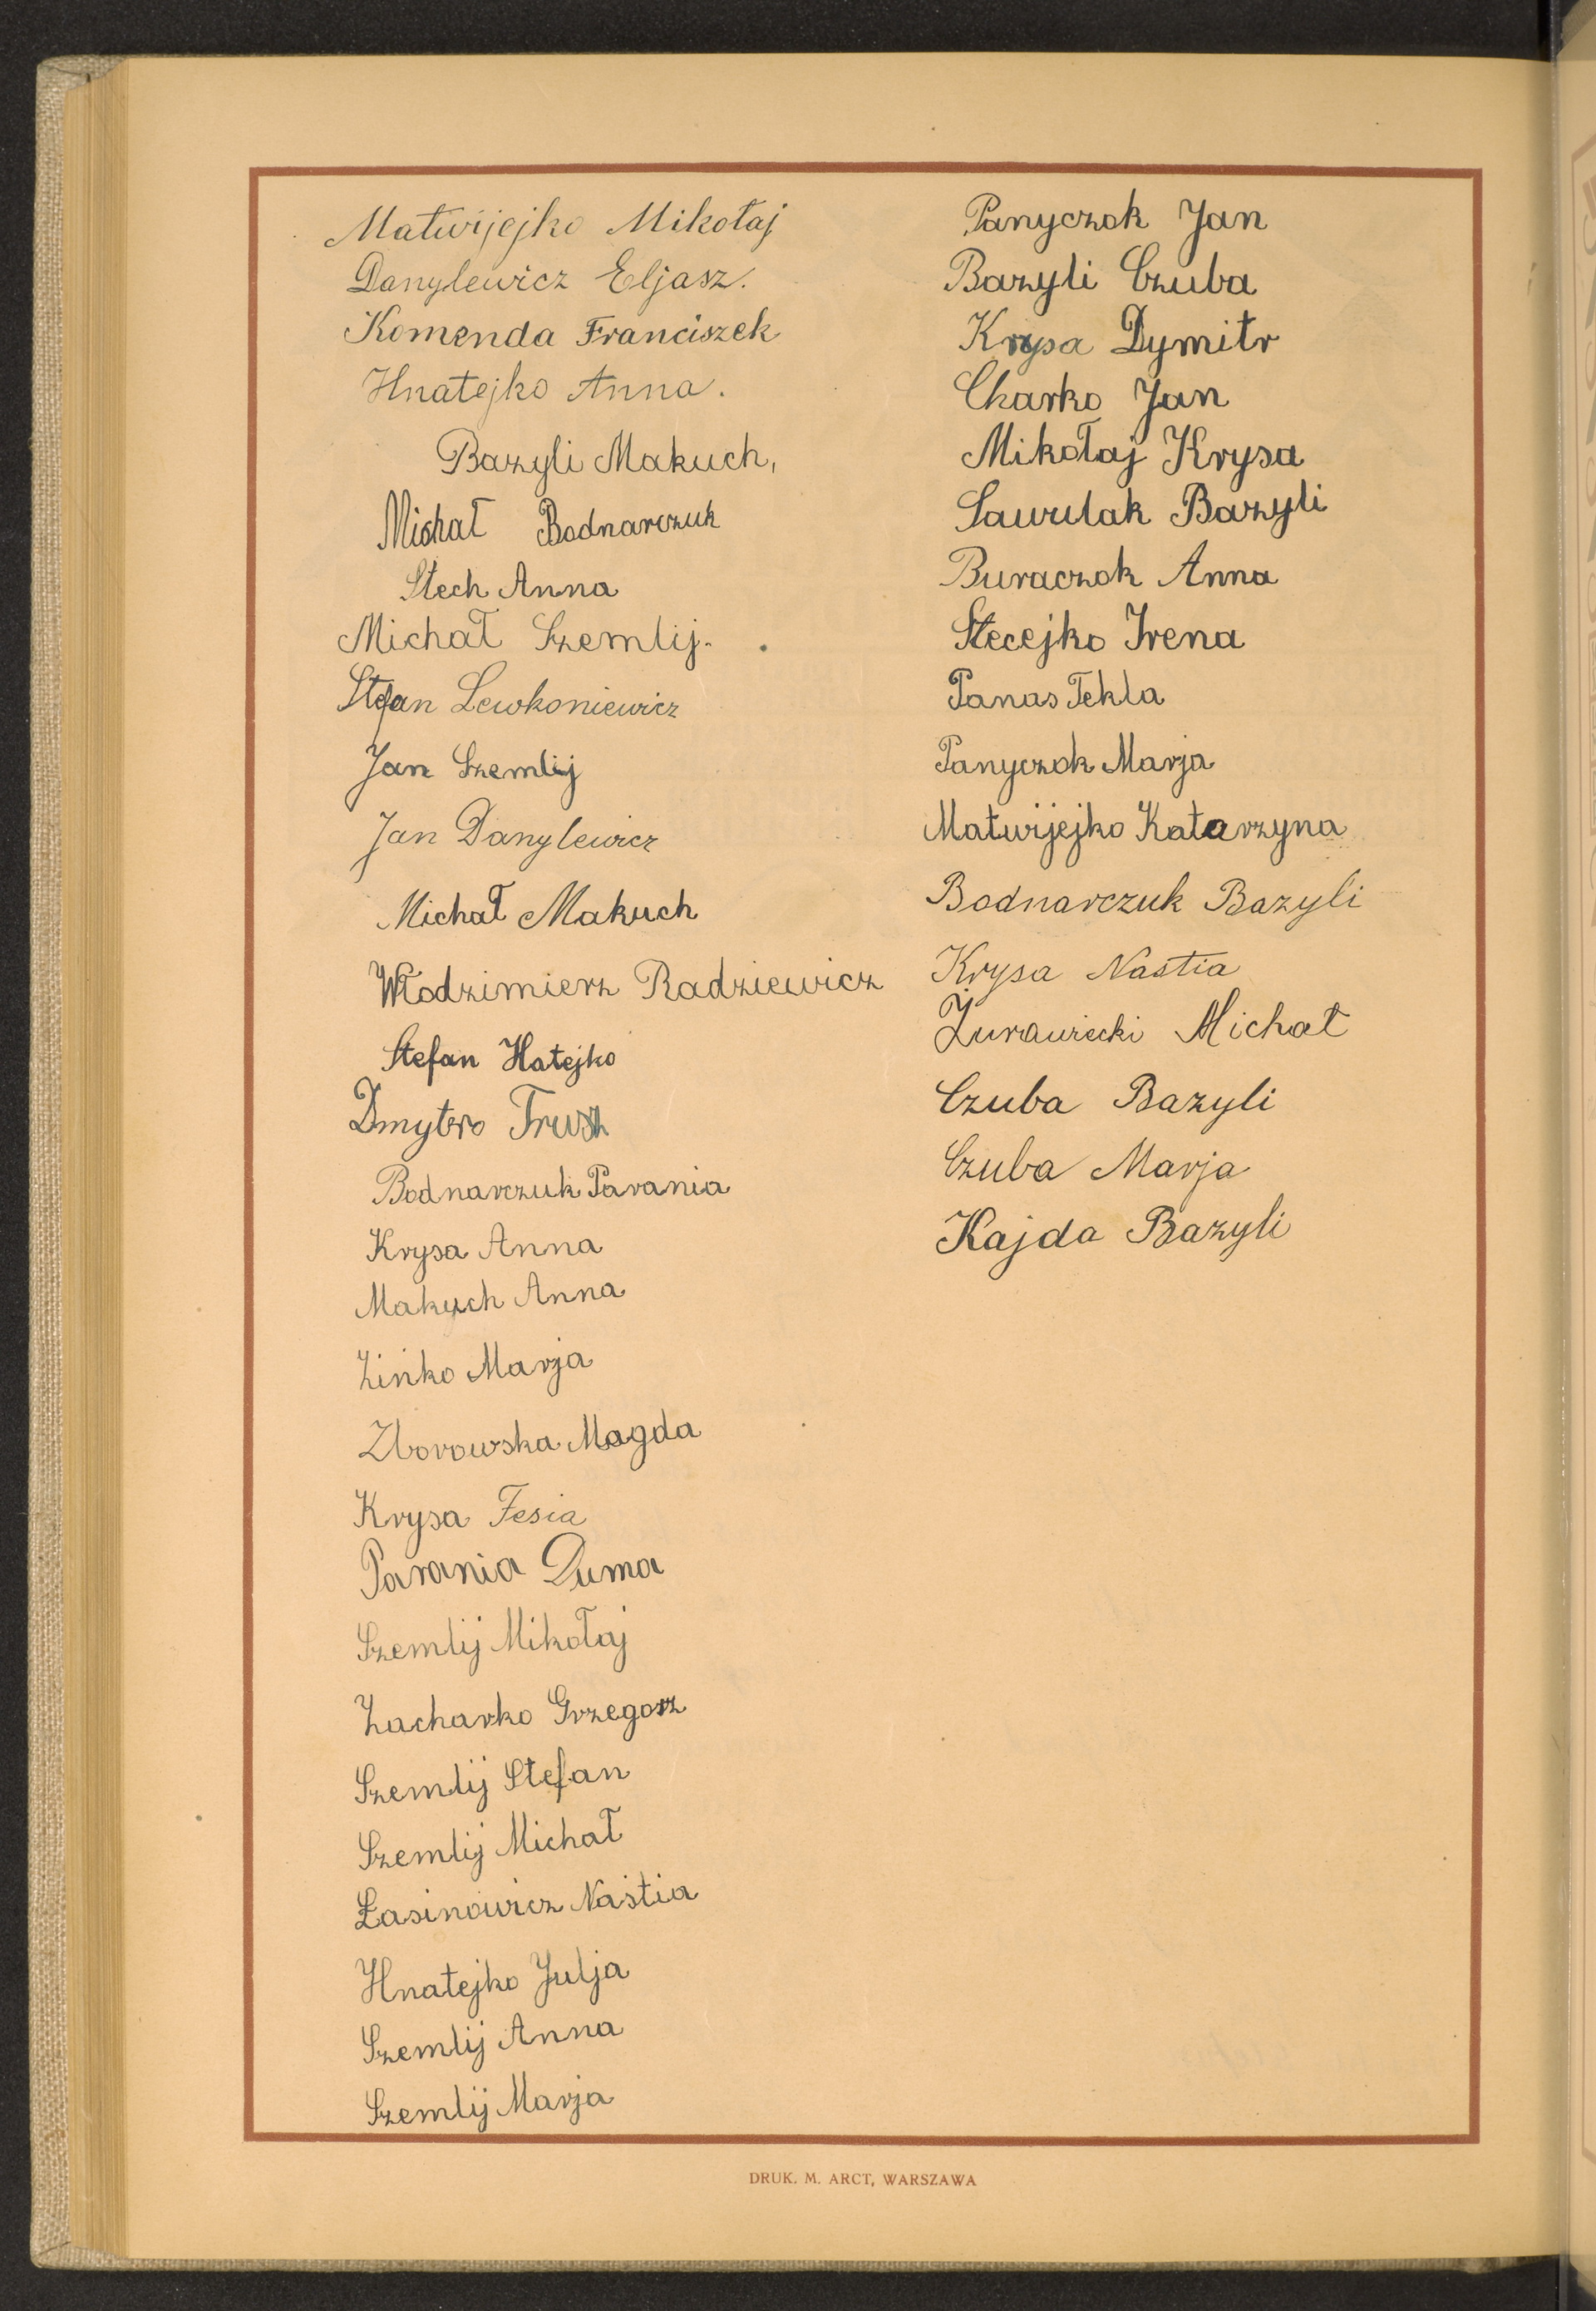 Matwijejko Mikołaj
Danylewicz Eljasz.
Komenda Franciszek
Hnatejko Anna.
Bazyli Makuch,
Michał Bodnarczuk
Stech Anna
Michał Szemlij.
Stefan Lewkoniewicz
Jan Szemlij
Jan Danylewicz
Michał Makuch
Włodzimierz Radziewicz
Stefan Hatejko
Dmytro Trusz
Bodnarczuk Parania
Krysa Anna
Makuch Anna
Zińko Marja
Zborowska Magda
Krysa Fesia
Parania Duma
Szemlij Mikołaj
Zacharko Grzegorz
Szemlij Stefan
Szemlij Michał
Łasinowicz Nastia
Hnatejko Julja
Szemlij Anna
Szemlij Marja
Panyczok Jan
Bazyli Czuba
Krysa Dymitr
Charko Jan
Mikołaj Krysa
Sawulak Bazyli
Buraczok Anna
Stecejko Irena
Panas Tekla
Panyczok Marja
Matwijejko Katarzyna
Bodnarczuk Bazyli
Krysa Nastia
Żurawiecki Michał
Czuba Bazyli
Czuba Marja
Kajda Bazyli
DRUK. M. ARCT, WARSZAWA